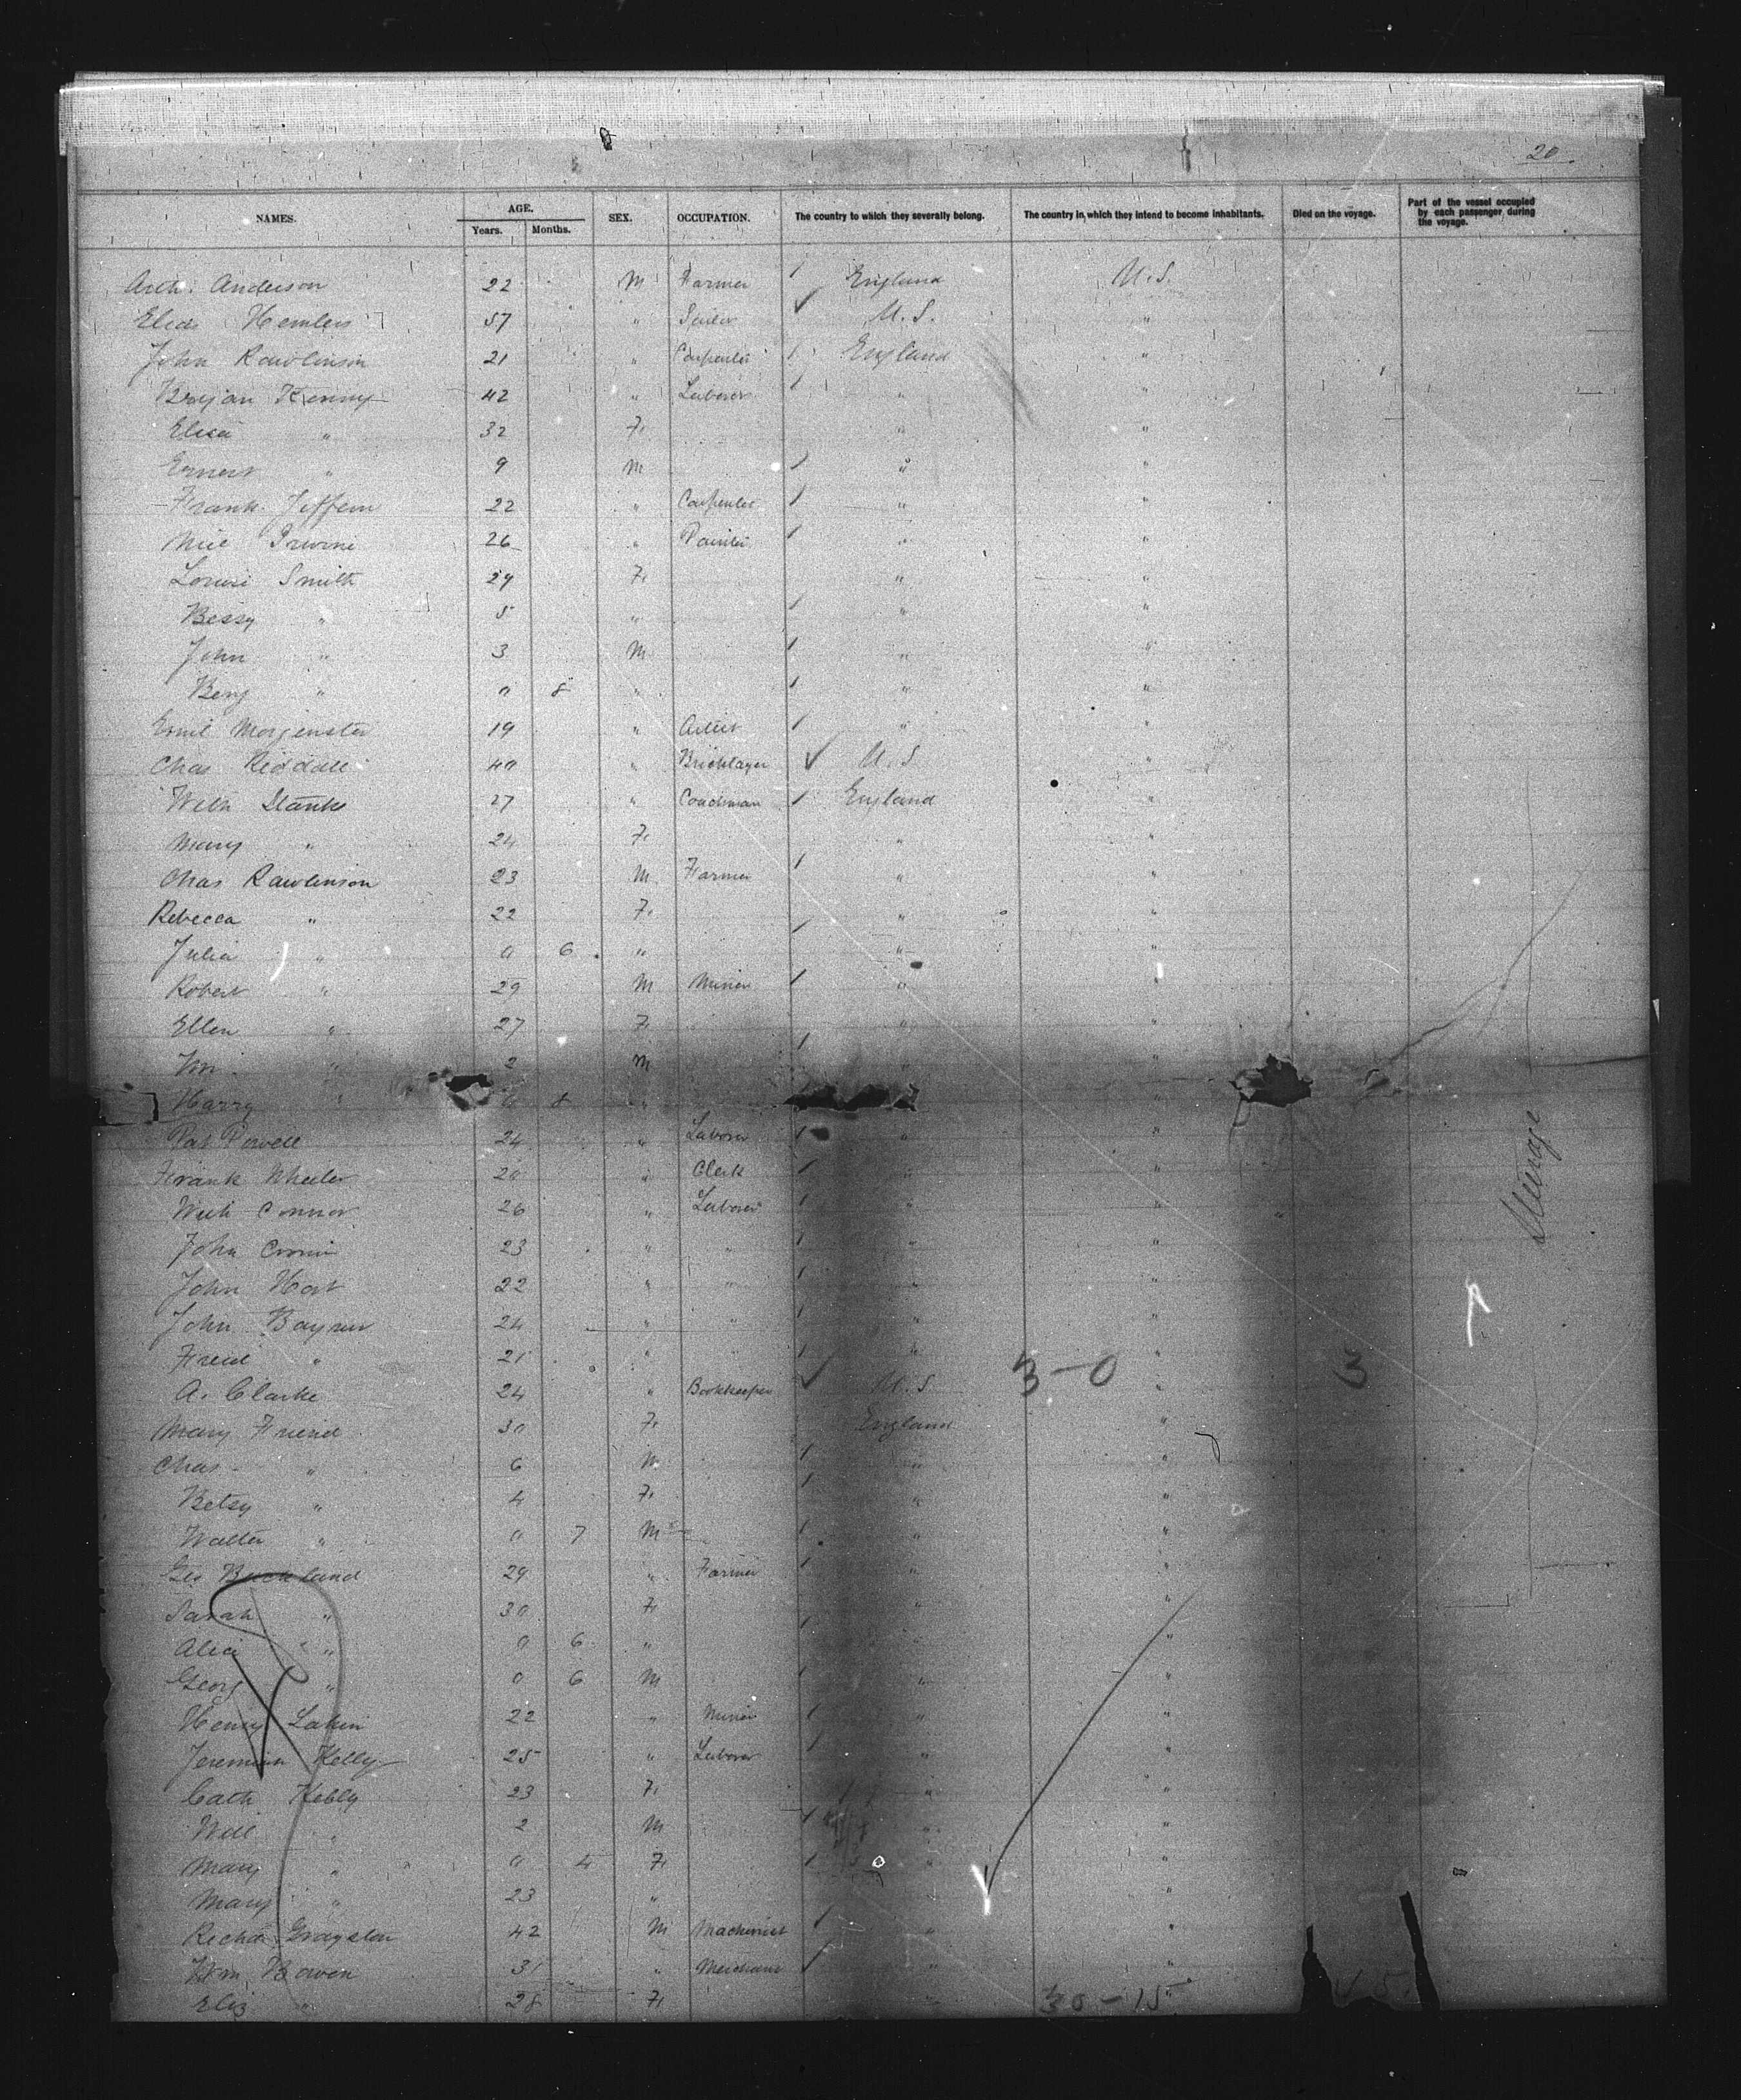 20.
NAMES. AGE. SEX. OCCUPATION. The country to which they severally belong. The country in which they intend to become inhabitants. Died on the voyage. Part of the vessel occupied by each passenger during the voyage.
Years. Months.
Arch. Anderson 22 M Farmer / England U.S.
Elias 57 " ✓ U.S. "
John Rawlinson 21 " Carpenter / England "
Bryan Kenny 42 " Laborer / " "
Eliza " 32 F. " "
Ernest " 9 M / " "
Frank 22 " Carpenter / " "
Irwine 26 " Painter / " "
Louise Smith 29 F. " "
Bessy " 5 " / " "
John " 3 M / " "
Benj " 0 8 " / " "
Emil Morgenster 19 " Artist / " "
Chas Riddall 40 " Bricklayer ✓ U.S "
Wm 27 " Coachman / England "
Mary " 24 F. " "
Chas Rawlinson 23 M Farmer / " "
Rebecca " 22 F. " "
Julia " 0 6 " / " "
Robert " 29 M Miner / " "
Ellen " 27 F. " "
Wm " 2 M / " "
Harry " 0 8 " "
Pat Powell 24 " Laborer / " "
Frank Wheeler 20 " Clerk / " "
Connor 26 " Laborer / " "
John Cronin 23 " " / " "
John Hart 22 " " / " "
John Bayner 24 " " / " "
" 21 " " / " "
3-0 3
A. Clarke 24 " Bookkeeper ✓ U.S "
Mary Friend 30 F. England "
Chas " 6 M / " "
Betsy " 4 F. / " "
Walter " 0 7 M / " "
Geo Buckland 29 " Farmer / " "
Sarah " 30 F. " "
Alice " 0 6 " / " "
Georg " 0 6 M / " "
Henry Lakin 22 " Miner / " "
Jeremiah Kelly 25 " Laborer / " "
Cath Kelly 23 F. " "
Will " 2 M / " "
Mary " 0 4 F. / " "
Mary " 23 " "
Richd Grayston 42 M Machinist / " "
Wm Bowen 31 " Merchant / " "
Eliz " 28 F. " 30-15 45
Steerage